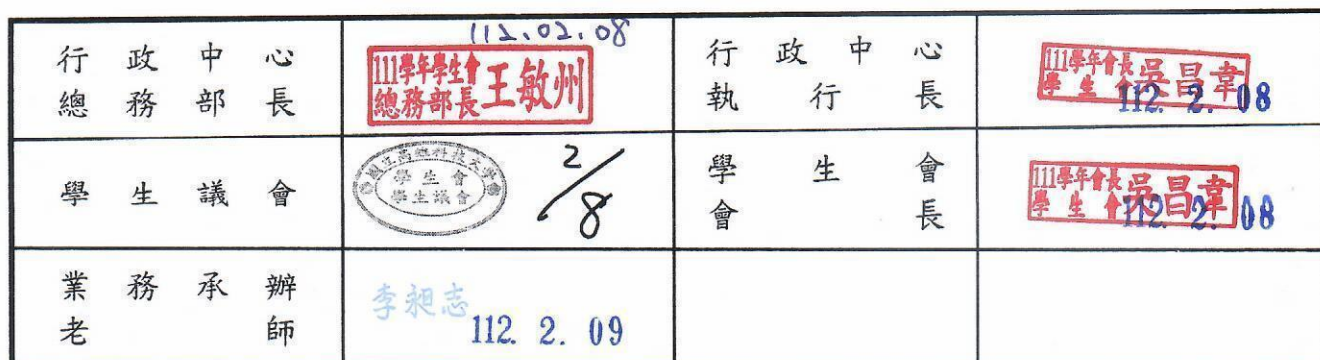 行政中心
總務部長
112.02.08
111學年學生會
總務部長王敏州
行政中心
執行長
111學年會長
學生會吳昌韋
112. 2. 08
學生議會
國立高雄科技大學
學生會
學生議會
2/8
學生會
會長
111學年會長
學生會吳昌韋
112. 2. 08
業務承辦
老師
李昶志
112. 2. 09